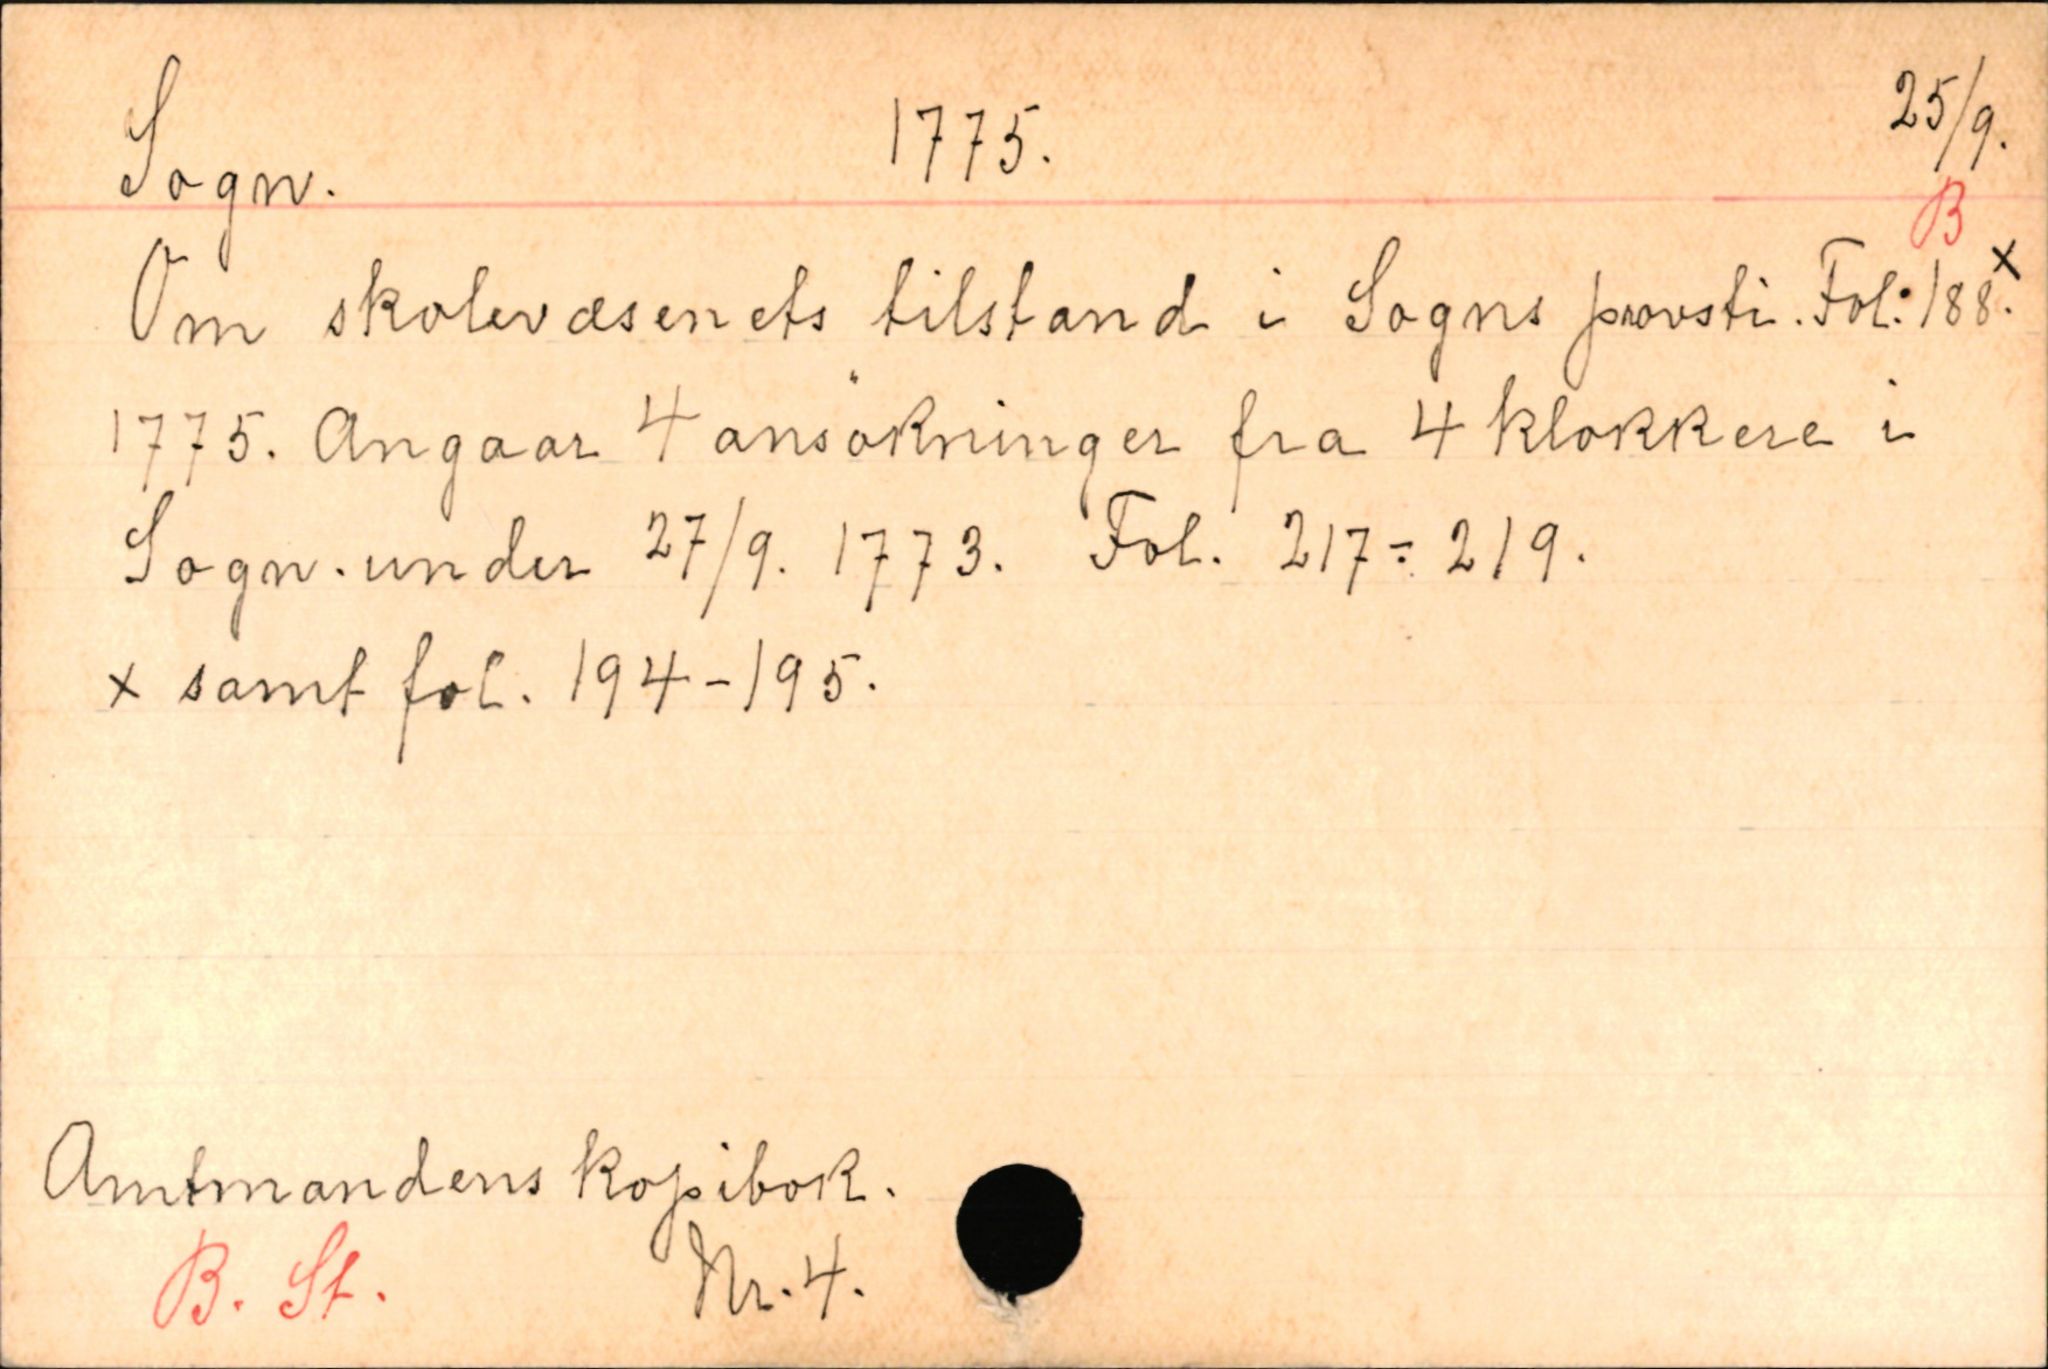 Sogn. 1775. 25/9.
B
Om skolevæsenets tilstand i Sogns provsti. Fol: 188.x
1775. Angaar 4 ansökninger fra 4 klokkere i
Sogn. under 27/9. 1773. Fol. 217÷219.
x samt fol. 194-195.
Amtmandens kopibok.
B. St. Nr. 4.